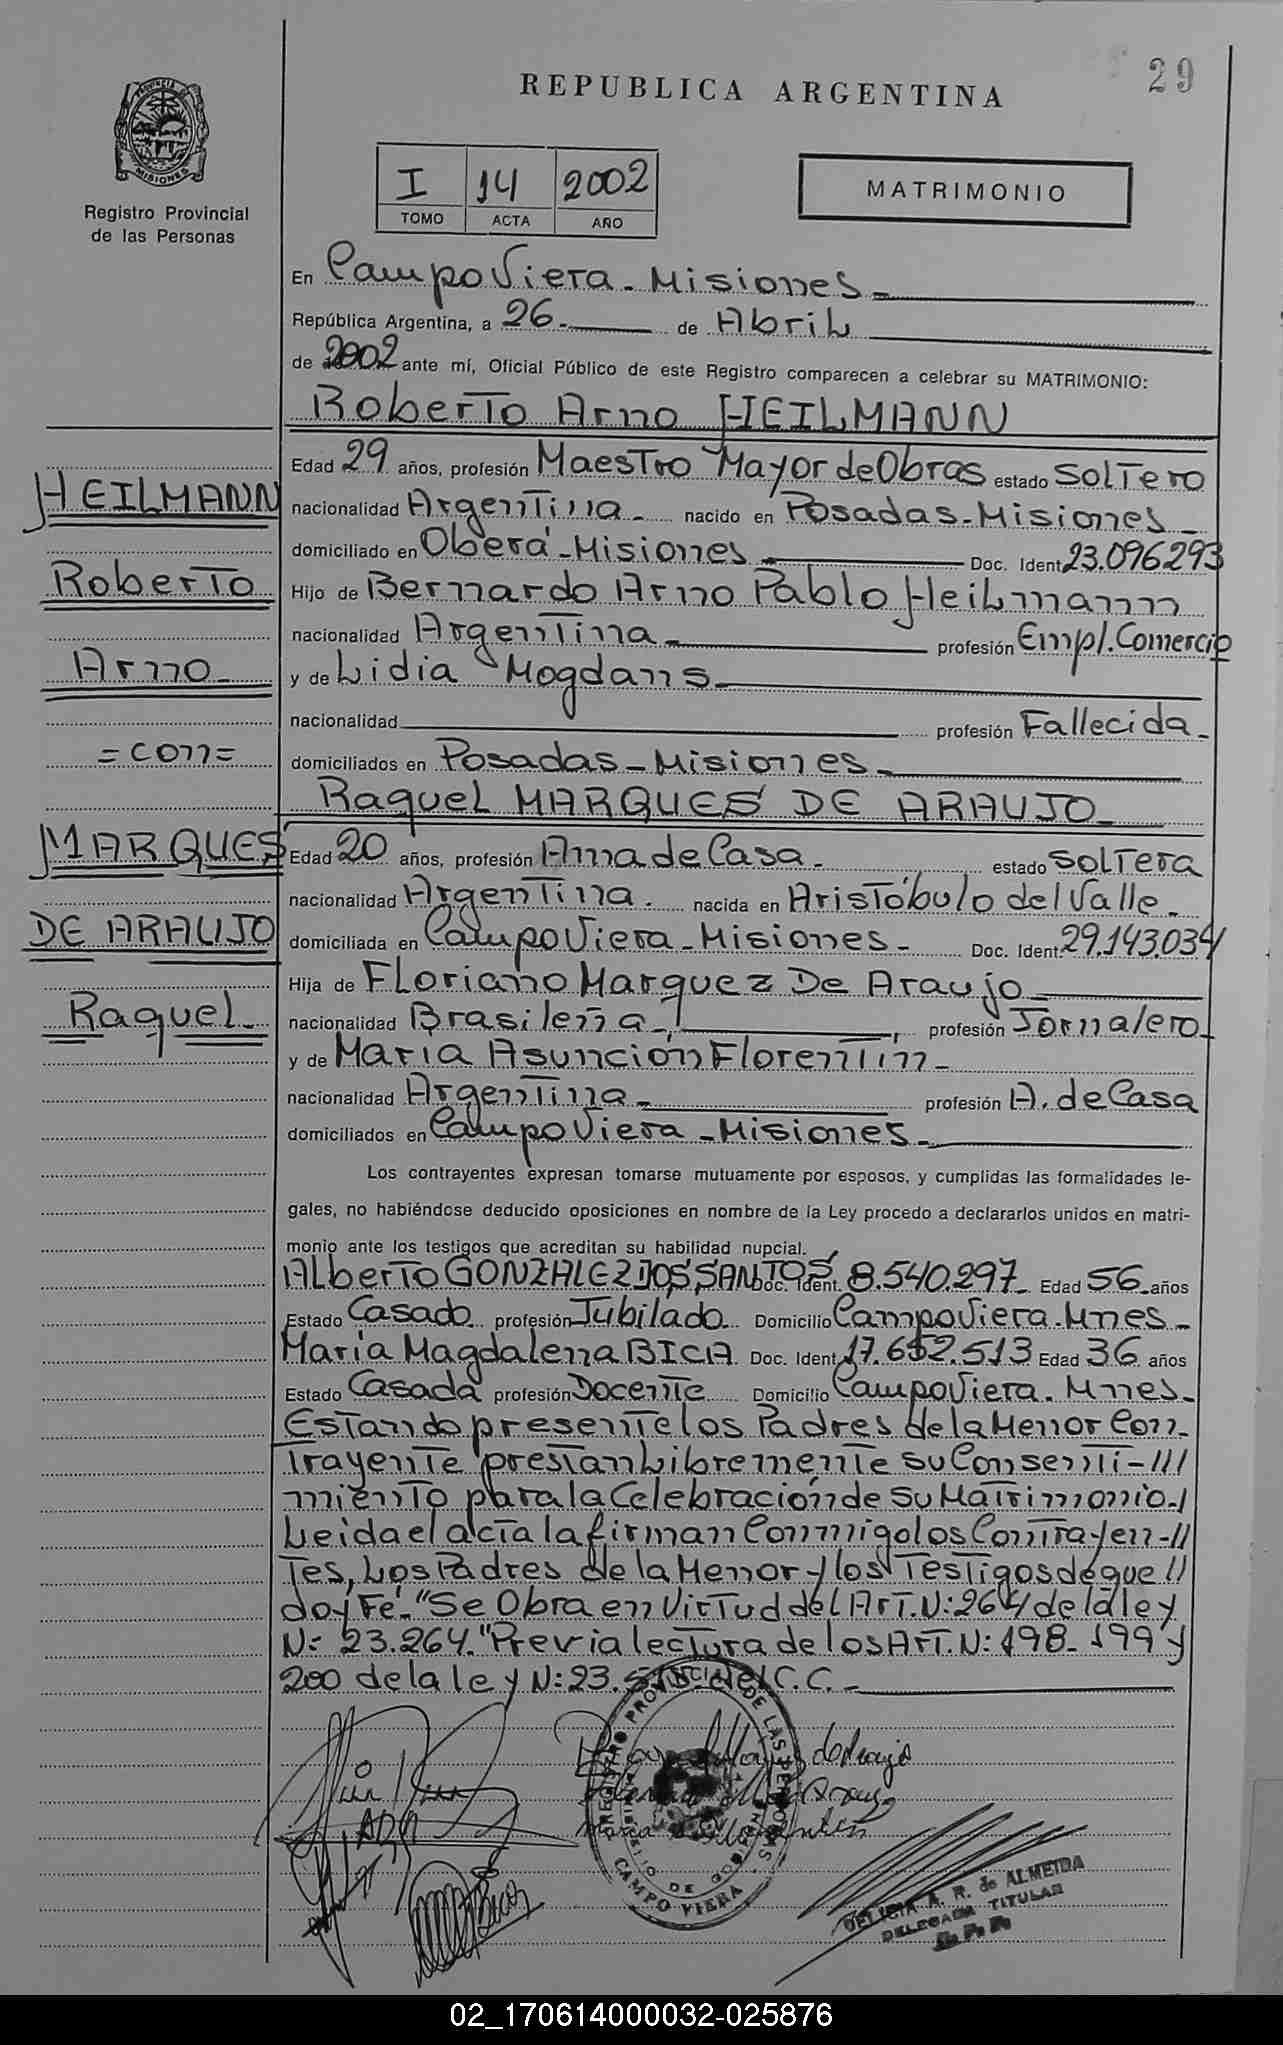 29
REPUBLICA ARGENTINA
PROVINCIA DE
MISIONES
Registro Provincial
de las Personas
I 14 2002
TOMO ACTA AÑO
MATRIMONIO
En Campo Viera - Misiones -
República Argentina, a 26 - de Abril
de 2002 ante mí, Oficial Público de este Registro comparecen a celebrar su MATRIMONIO:
Roberto Arno HEILMANN
Edad 29 años, profesión Maestro Mayor de Obras estado Soltero
nacionalidad Argentina - nacido en Posadas - Misiones -
domiciliado en Oberá - Misiones - Doc. Ident 23.096293
Hijo de Bernardo Arno Pablo Heilmann
nacionalidad Argentina - profesión Empl. Comercio
y de Lidia Mogdans -
nacionalidad profesión Fallecida -
domiciliados en Posadas - Misiones -
HEILMANN
Roberto
Arno -
= con =
MARQUES
DE ARAUJO
Raquel -
Raquel MARQUES DE ARAUJO -
Edad 20 años, profesión Ama de Casa - estado Soltera
nacionalidad Argentina . nacida en Aristóbulo del Valle -
domiciliada en Campo Viera - Misiones - Doc. Ident. 29.143.034
Hija de Floriano Marquez De Araujo -
nacionalidad Brasileña - profesión Jornalero -
y de María Asunción Florentin -
nacionalidad Argentina - profesión A. de Casa
domiciliados en Campo Viera - Misiones -
Los contrayentes expresan tomarse mutuamente por esposos, y cumplidas las formalidades le-
gales, no habiéndose deducido oposiciones en nombre de la Ley procedo a declararlos unidos en matri-
monio ante los testigos que acreditan su habilidad nupcial.
Alberto GONZALEZ DOS SANTOS Doc. Ident. 8.540.297 Edad 56 años
Estado Casado profesión Jubilado Domicilio Campo Viera. Mnes -
María Magdalena BICA Doc. Ident. 17.652.513 Edad 36 años
Estado Casada profesión Docente Domicilio Campo Viera. Mnes -
Estando presente los Padres de la Menor Con-
trayente prestan Libremente su Consenti-///
miento para la Celebración de su Matrimonio./
Leida el acta la firman Conmigo los Contrayen-//
tes, Los Padres de la Menor y los Testigos de que //
doy Fé. "Se Obra en Virtud del Art. N: 264 de la ley
N: 23.264." Previa lectura de los Art. N: 198 - 199 y
200 de la ley N: 23.515 del C.C. -
REGISTRO PROVINCIAL DE LAS PERSONAS
MINISTERIO DE GOBIERNO
CAMPO VIERA
DELICIA A. R. de ALMEIDA
DELEGADA TITULAR
02_170614000032-025876